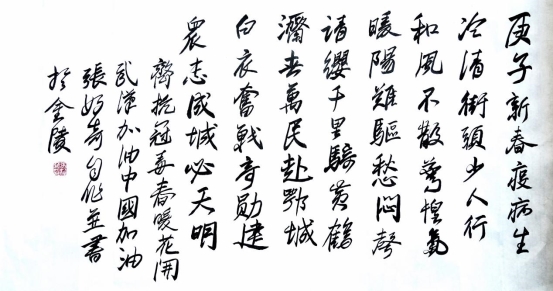 庚子新春疫病生
冷清街頭少人行
和風不散驚惶氣
暖陽難驅愁悶聲
請纓千里騎黃鶴
萬民赴鄂城
白衣奮戰奇勛建
眾志成城必天明
齊抗冠毒春暖花開
武漢加油中國加油
張 奇自作並書
於金陵